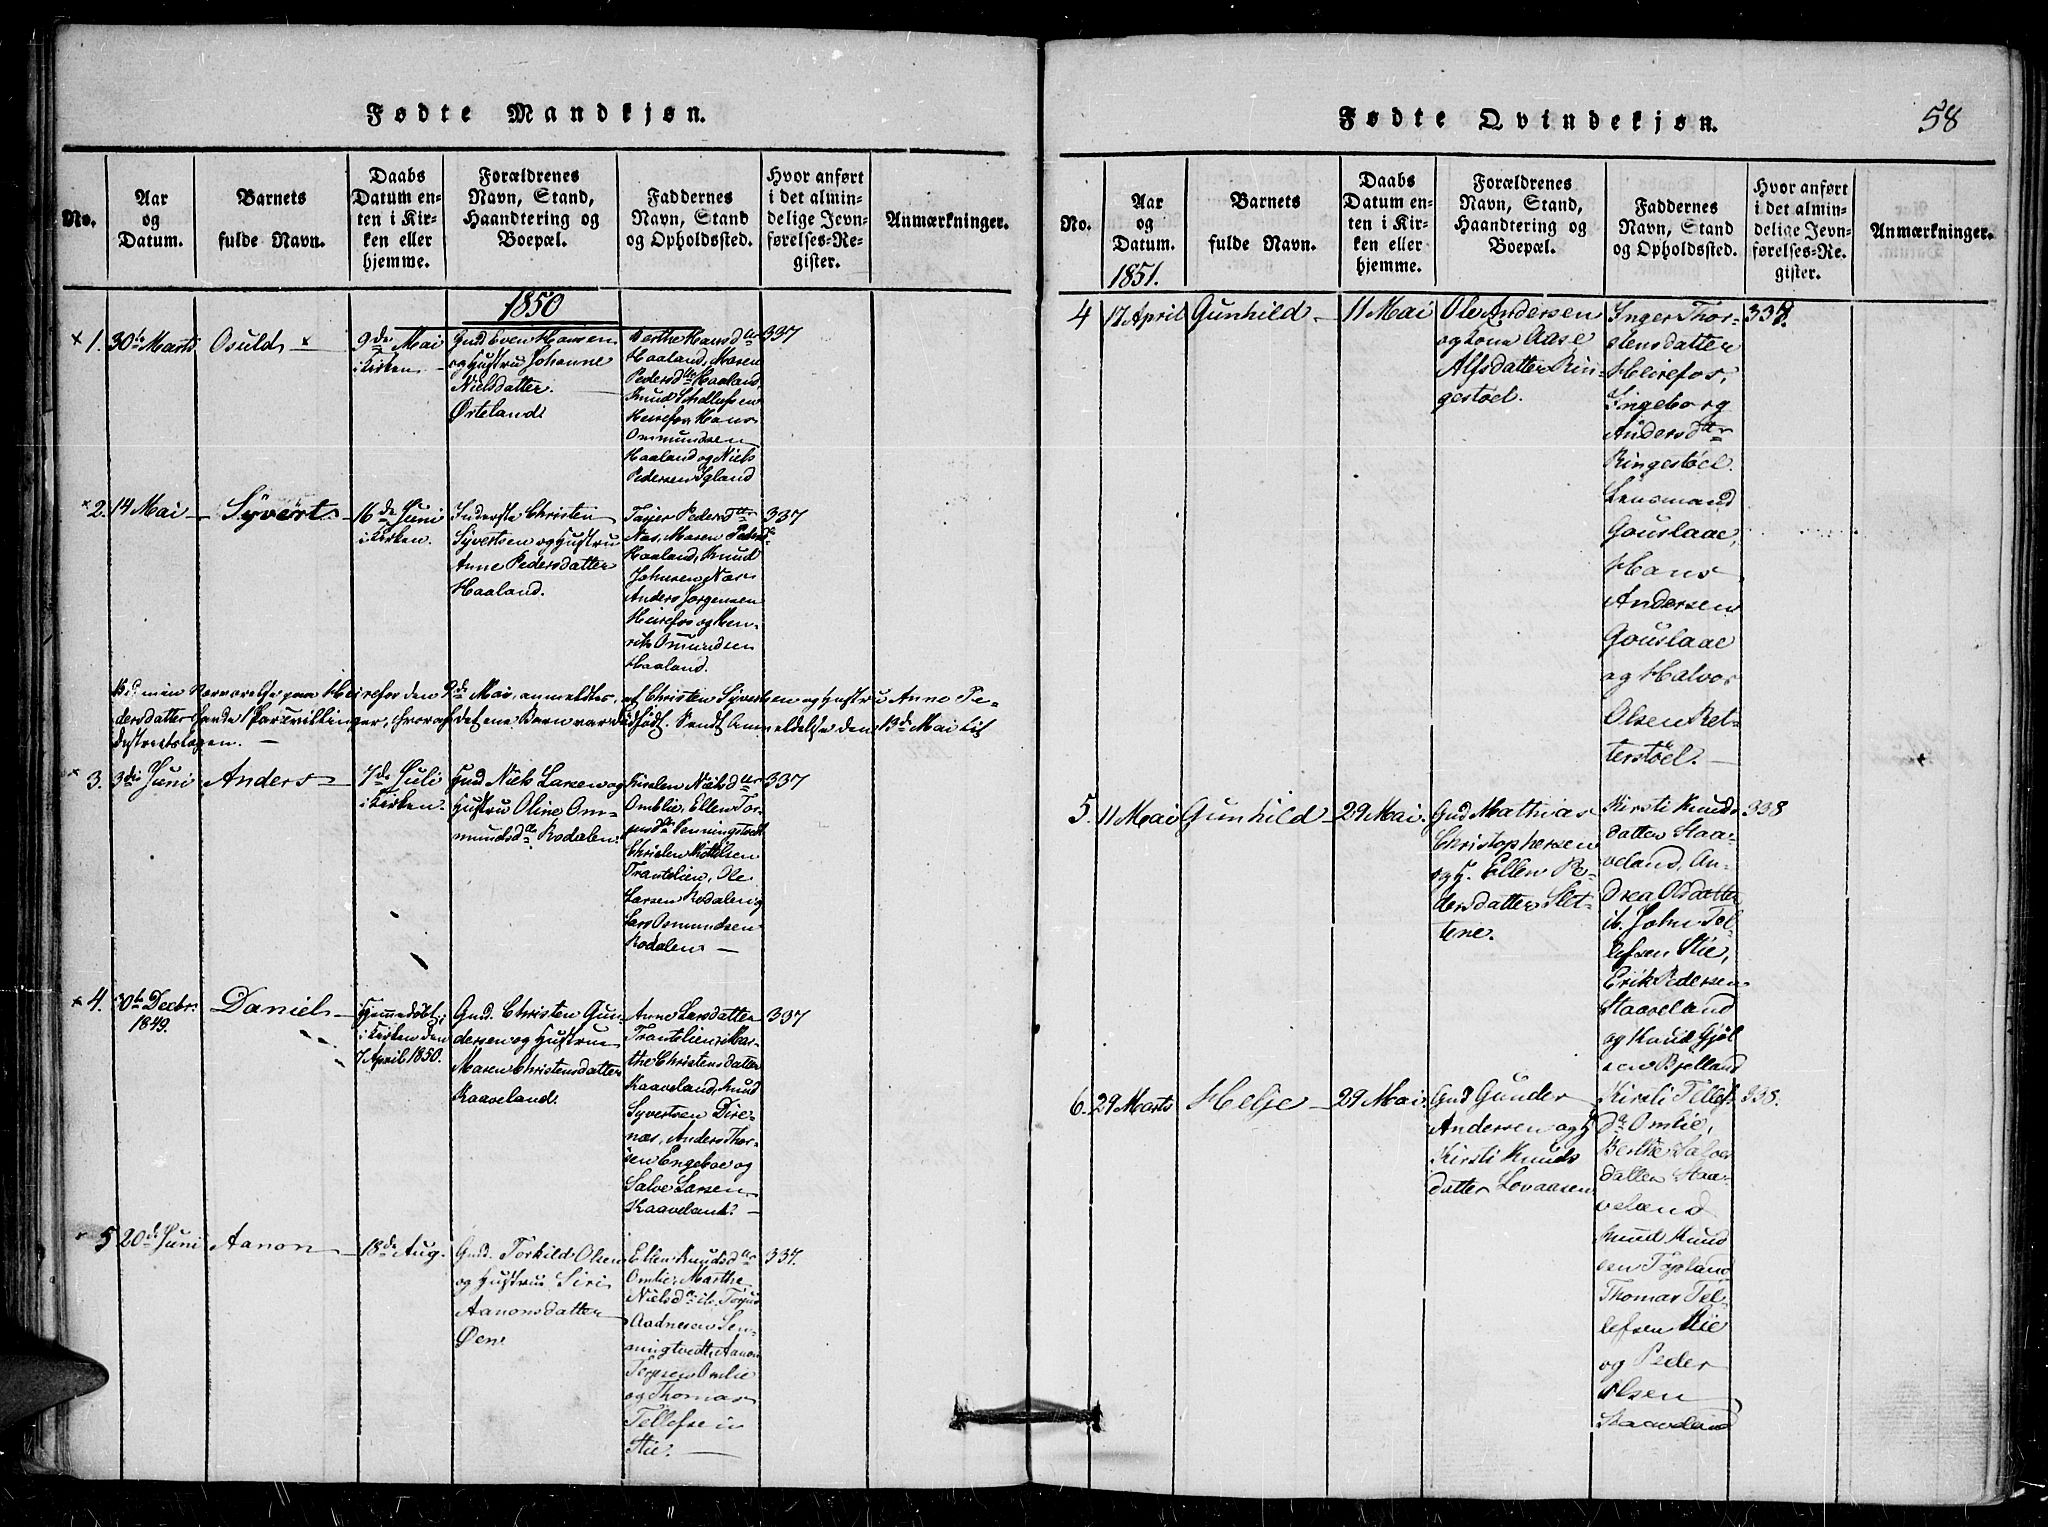 Fødte Mandkjøn.
No.
Aar
og
Datum.
Barnets
fulde Navn.
Daabs
Datum en-
ten i Kir-
ken eller
hjemme.
Forældrenes
Navn, Stand,
Haandtering og
Boepæl.
Faddernes
Navn, Stand
og Opholdssted.
Hvor anført
i det almin-
delige Jevn-
førelses-Re-
gister.
Anmærkninger.
1850
1.
30te Marts
Osuld
9de Mai
i Kirken
Gmd Even Hansen
og Hustru Johanne
Nielsdatter
Østeland
Berthe Hansdtter
Haaland, Maren
Pedersdtter Haaland,
Knud
Heirefos Hans
Ommundsen
Haaland og Niels
Pedersen Igland
337
2.
14 Mai
Syvert
16de Juni
i Kirken.
Inderste Christen
Syvertsen og Hustru
Anne Pedersdatter
Haaland.
Tarjer Pedersdtter
Næs, Maren Pedersd.
Haaland, Knud
Johnsen Næs
Anders Jørgensen
Heirefos og Hen-
rik Omundsen
Haaland.
337
Ved min Nærværelse paa Heirefos den 9de Mai, anmeldtes, at Christen Syvertsen og Hustru Anne Pe-
dersdatter havde 1 Par Tvillinger, hvoraf det ene Barn var dødfødt. Sendt Anmeldelse den 13de Mai til
3.
3die Juni
Anders
7de Juli
i Kirken.
Gmd Niels Larsen og
Hustru Oline Om-
mundsdtr Rodalen.
Nielsdtter
Omlie, Ellen
Christen
Trantelien, Ole
Larsen Rodalen og
Lars Osmundsen
Rodalen
337
4.
30te Decbr.
1849.
Daniel
Hjemmedøbt,
i Kirken den
7 April 1850.
Gmd. Christen Gun-
dersen og Hustru
Maren Christensdatter
Kaaveland.
Anne Larsdatter
Trantelien, Mar-
the Christensdatter
Kaaveland, Knud
Syvertsen Dire-
næs, Anders Thor-
sen Engeboe og
Salve Larsen
Kaaveland.
337
5
20de Juni
Aanon
18de Aug.
Gmd. Torkild Olsen
og Hustru Siri
Aanonsdatter
Øen
Ellen Knudsdtter
Omlie, Marthe
Nielsd. ib. Torjus
Aadnesen Sen-
ningtvedt, Aanon
Omlie
og Thomas
Tellefsen
Stie.
337.
Fødte Qvindekjøn.
58
No.
Aar
og
Datum.
1851.
Barnets
fulde Navn.
Daabs
Datum en-
ten i Kir-
ken eller
hjemme.
Forældrenes
Navn, Stand,
Haandtering og
Boepæl.
Faddernes
Navn, Stand
og Opholdssted.
Hvor anført
i det almin-
delige Jevn-
førelses-Re-
gister.
Anmærkninger.
4
17 April
Gunhild
11 Mai
Ole Andersen
og Kone Aase
Alfsdatter Rin-
gestøel.
Inger Thor-
stensdatter
Heirefos,
Ingeborg
Andersdttr
Ringestøel.
Lensmand
Gouslaae,
Hans
Andersen
Gouslaae
og Halvor
Olsen Ret-
terstøel.
338.
5.
11 Mai
Gunhild
29 Mai.
Gmd Mathias
Christophersen
og H. Ellen Pe-
dersdatter Slet-
tene.
Kirsti Knuds-
datter Staa-
veland, An-
drea Olsdatter
ib. John Tel-
lefsen Stie,
Erik Pedersen
Staaveland
og Knud Gjøl
sen Bjelland
338
6.
29 Marts
Helje
29 Mai.
Gmd Gunder
Andersen og H
Kirsti Knuds
datter Lovaasen
Kirsti Tellef-
dr Omlie,
Berthe Salves
datter Staa-
veland
Knud Knud
sen Topland
Thomas Tel-
lefsen Stie
og Peder
Olsen
Staaveland
338.